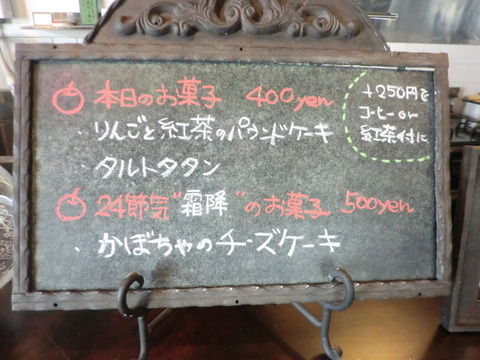 本日のお菓子 400yen
・りんごと紅茶のパウンドケーキ
・タルトタタン
24節気"霜降"のお菓子 500yen
・かぼちゃのチーズケーキ
+250円で
コーヒーor
紅茶付に